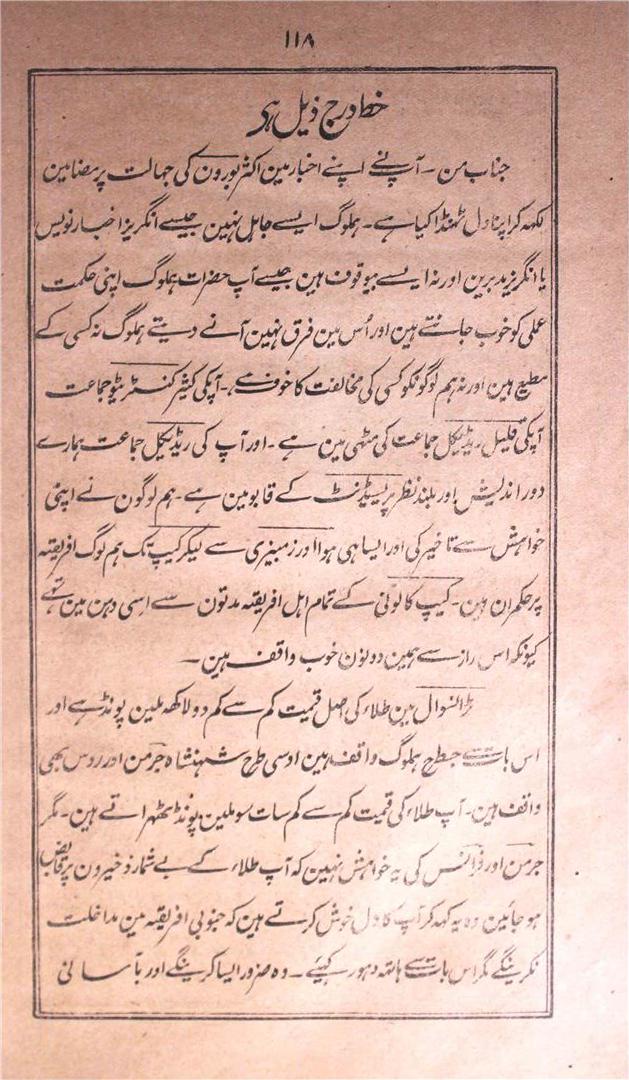 ۱۱۸
خط درج ذیل ہی
جناب من - آپنے اپنے اخبار مین اکثر بورون کی جہالت پر مضامین
لکہہ کر اپنا دل ٹہنڈا کیا ہے - ہملوگ ایسے جاہل نہین جیسے انگریز اخبار نویس
یا انگریز مدبرین اور نہ ایسے بیوقوف ہین جیسے آپ حضرات ہملوگ اپنی حکمت
عملی کو خوب جانتے ہین اور اُس مین فرق نہین آنے دیتے ہملوگ نہ کسی کے
مطیع ہین اور نہ ہم لوگونکو کسی کی مخالفت کا خوف ہے - آپکی کثیر کنسرویٹو جماعت
آپکی قلیل ریڈیکل جماعت کی مٹھی مین ہے - اور آپ کی ریڈیکل جماعت ہمارے
دور اندیش اور بلند نظر پریسیڈنٹ کے قابو مین ہے - ہم لوگون نے اپنی
خواہش سے تاخیر کی اور ایسا ہی ہوا اور زمبیزی سے لیکر کیپ تک ہم لوگ افریقہ
پر حکمران ہین - کیپ کالونی کے تمام اہل افریقہ مدتون سے اسی دہن مین تہے
کیونکہ اس راز سے ہمین دونون خوب واقف ہین -
ٹرانسوال مین طلاء کی اصل قیمت کم سے کم دو لاکھہ ملین پونڈ ہے اور
اس بات سے جسطرح ہملوگ واقف ہین اوسی طرح شہنشاہ جرمن اور روس بھی
واقف ہین - آپ طلاء کی قیمت کم سے کم سات سو ملین پونڈ ٹھہراتے ہین - مگر
جرمن اور فرانس کی یہ خواہش نہین کہ آپ طلاء کے بے شمار ذخیرون پر قابض
ہو جائین وہ یہ کہہ کر آپ کا دل خوش کرتے ہین کہ جنوبی افریقہ مین مداخلت
نکرینگے مگر اس بات سے ہاتہہ دہور کہیے - وہ ضرور ایسا کرینگے اور بآسانی